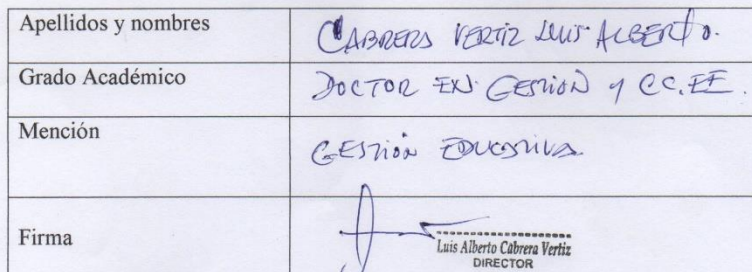 Apellidos y nombres
CABRERA VERTIZ LUIS ALBERTO.
Grado Académico
DOCTOR EN GESTIÓN Y CC.EE.
Mención
GESTIÓN EDUCATIVA
Firma
Luis Alberto Cabrera Vertiz
DIRECTOR